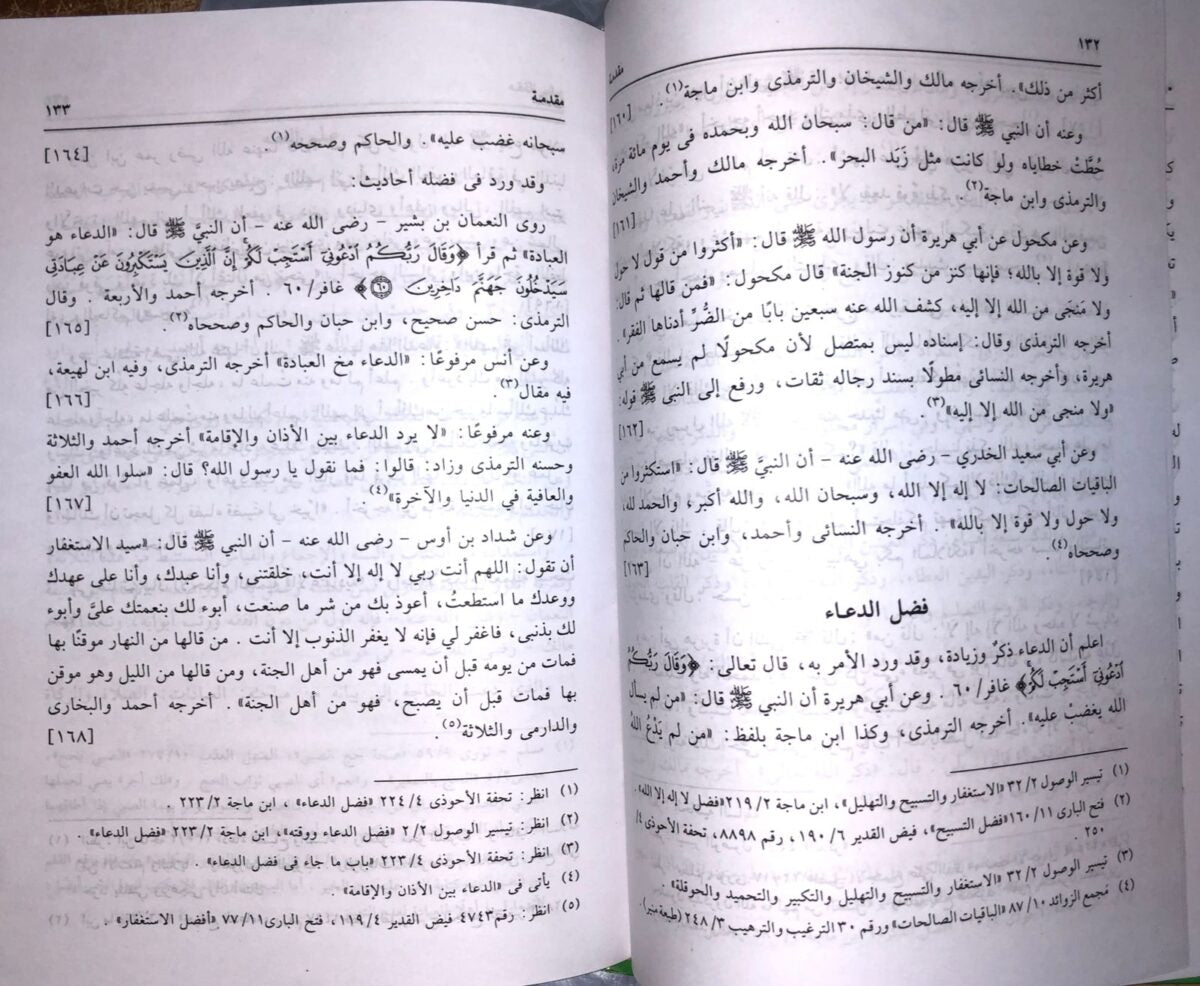 ١٣٢
مقدمة
أكثر من ذلك». أخرجه مالك والشيخان والترمذى وابن ماجة(١).
[١٦٠]
وعنه أن النبي ﷺ قال: «من قال: سبحان الله وبحمده فى يوم مائة مرة،
حُطَّتْ خطاياه ولو كانت مثل زَبَد البحر». أخرجه مالك وأحمد والشيخان
والترمذى وابن ماجة(٢).
[١٦١]
وعن مكحول عن أبي هريرة أن رسول الله ﷺ قال: «أكثروا من قول لا حول
ولا قوة إلا بالله؛ فإنها كنز من كنوز الجنة» قال مكحول: «فمن قالها ثم قال:
ولا مَنجَى من الله إلا إليه، كشف الله عنه سبعين بابًا من الضُّرِّ أدناها الفقر».
أخرجه الترمذى وقال: إسناده ليس بمتصل لأن مكحولًا لم يسمع من أبي
هريرة، وأخرجه النسائى مطولًا بسند رجاله ثقات، ورفع إلى النبي ﷺ قوله:
«ولا منجى من الله إلا إليه»(٣).
[١٦٢]
وعن أبي سعيد الخدري - رضى الله عنه - أن النبيَّ ﷺ قال: «استكثروا من
الباقيات الصالحات: لا إله إلا الله، وسبحان الله، والله أكبر، والحمد لله،
ولا حول ولا قوة إلا بالله» . أخرجه النسائى وأحمد، وابن حبان والحاكم
وصححاه(٤).
[١٦٣]
فضل الدعاء
اعلم أن الدعاء ذكرٌ وزيادة، وقد ورد الأمر به، قال تعالى: ﴿وَقَالَ رَبُّكُمُ
ٱدْعُونِىٓ أَسْتَجِبْ لَكُمْ﴾ غافر/٦٠ . وعن أبي هريرة أن النبي ﷺ قال: «من لم يسأل
الله يغضبْ عليه». أخرجه الترمذى، وكذا ابن ماجة بلفظ: «من لم يَدْعُ اللهَ
(١) تيسير الوصول ٣٢/٢ «الاستغفار والتسبيح والتهليل»، ابن ماجة ٢١٩/٢ «فضل لا إله إلا الله» .
(٢) فتح البارى ١٦٠/١١ «فضل التسبيح»، فيض القدير ١٩٠/٦، رقم ٨٨٩٨، تحفة الأحوذى ٤/
٢٥٠ .
(٣) تيسير الوصول ٣٢/٢ «الاستغفار والتسبيح والتهليل والتكبير والتحميد والحوقلة» .
(٤) مجمع الزوائد ٨٧/١٠ «الباقيات الصالحات» ورقم ٣٠ الترغيب والترهيب ٢٤٨/٣ (طبعة منير).
مقدمة
١٣٣
سبحانه غضب عليه». والحاكم وصححه(١).
[١٦٤]
وقد ورد فى فضله أحاديث:
روى النعمان بن بشير - رضى الله عنه - أن النبيَّ ﷺ قال: «الدعاء هو
العبادة» ثم قرأ ﴿وَقَالَ رَبُّكُمُ ٱدْعُونِىٓ أَسْتَجِبْ لَكُمْ إِنَّ ٱلَّذِينَ يَسْتَكْبِرُونَ عَنْ عِبَادَتِى
سَيَدْخُلُونَ جَهَنَّمَ دَاخِرِينَ ٦٠﴾ غافر/٦٠ . أخرجه أحمد والأربعة . وقال
الترمذى: حسن صحيح، وابن حبان والحاكم وصححاه(٢).
[١٦٥]
وعن أنس مرفوعًا: «الدعاء مخ العبادة» أخرجه الترمذى، وفيه ابن لهيعة،
فيه مقال(٣).
[١٦٦]
وعنه مرفوعًا: «لا يرد الدعاء بين الأذان والإقامة» أخرجه أحمد والثلاثة
وحسنه الترمذى وزاد: قالوا: فما نقول يا رسول الله؟ قال: «سلوا الله العفو
والعافية في الدنيا والآخرة»(٤).
[١٦٧]
وعن شداد بن أوس - رضى الله عنه - أن النبي ﷺ قال: «سيد الاستغفار
أن تقول: اللهم أنت ربي لا إله إلا أنت، خلقتنى، وأنا عبدك، وأنا على عهدك
ووعدك ما استطعتُ، أعوذ بك من شر ما صنعت، أبوء لك بنعمتك علىَّ وأبوء
لك بذنبى، فاغفر لي فإنه لا يغفر الذنوب إلا أنت . من قالها من النهار موقنًا بها
فمات من يومه قبل أن يمسى فهو من أهل الجنة، ومن قالها من الليل وهو موقن
بها فمات قبل أن يصبح، فهو من أهل الجنة» . أخرجه أحمد والبخارى
والدارمى والثلاثة(٥).
[١٦٨]
(١) انظر: تحفة الأحوذى ٢٢٤/٤ «فضل الدعاء» ، ابن ماجة ٢٢٣/٢ .
(٢) انظر: تيسير الوصول ٢/٢ «فضل الدعاء ووقته»، ابن ماجة ٢٢٣/٢ «فضل الدعاء» .
(٣) انظر: تحفة الأحوذى ٢٢٣/٤ «باب ما جاء فى فضل الدعاء» .
(٤) يأتى فى «الدعاء بين الأذان والإقامة» .
(٥) انظر: رقم٤٧٤٣ فيض القدير ١١٩/٤، فتح البارى٧٧/١١ «أفضل الاستغفار» .